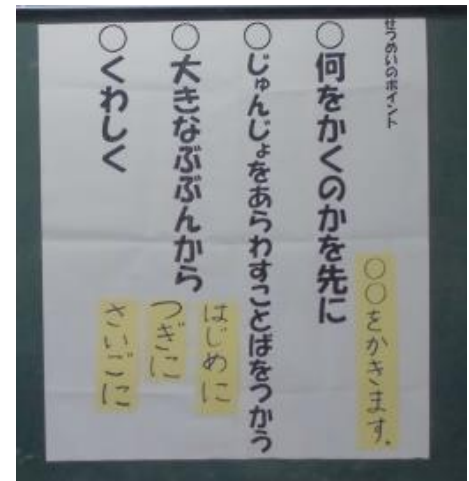 せつめいのポイント
○何をかくのかを先に
○○をかきます。
○じゅんじょをあらわすことばをつかう
はじめに
つぎに
さいごに
○大きなぶぶんから
○くわしく